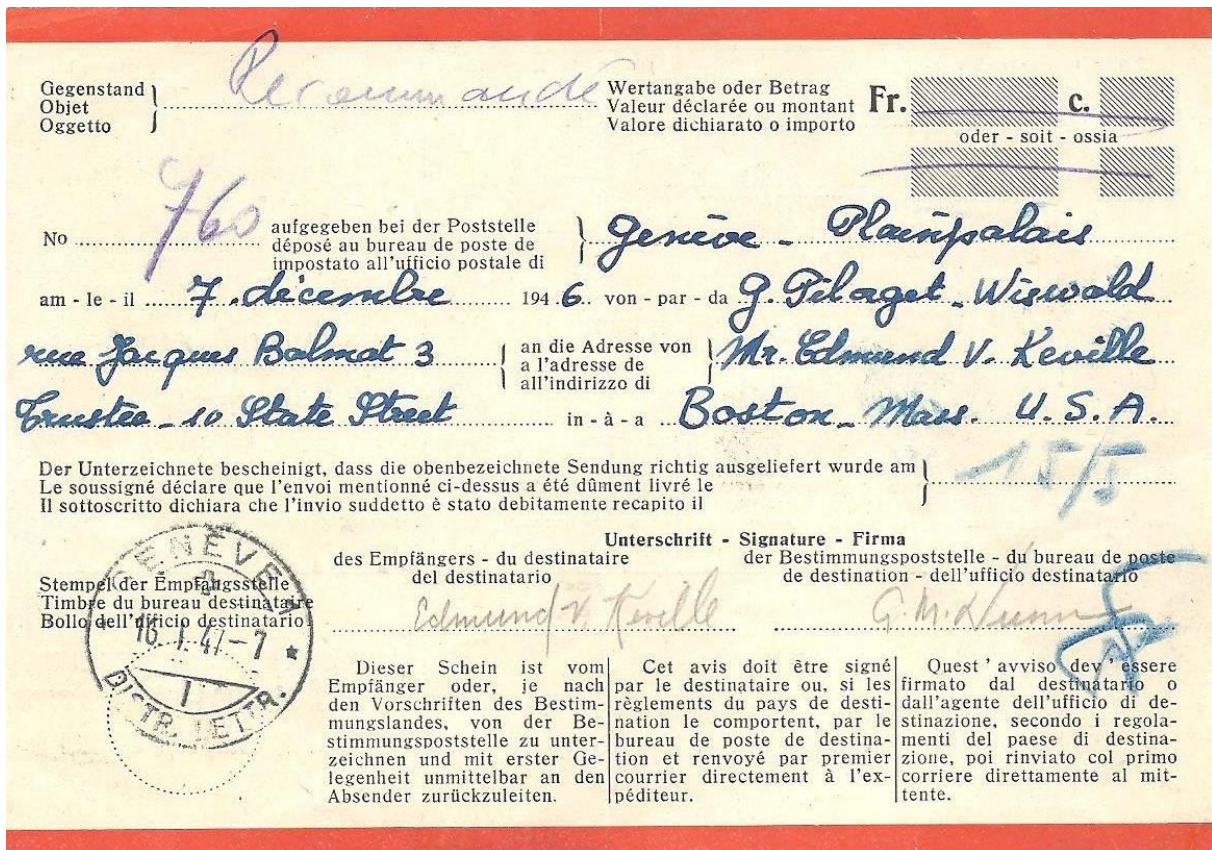 Gegenstand
Objet
Oggetto
Recommandé
Wertangabe oder Betrag
Valeur déclarée ou montant
Valore dichiarato o importo
Fr. c.
oder - soit - ossia
No 760
aufgegeben bei der Poststelle
déposé au bureau de poste de
impostato all'ufficio postale di
Genève - Plainpalais
am - le - il 7. décembre 1946 von - par - da G. Pélaget - Wiswald
rue Jacques Balmat 3
an die Adresse von
a l'adresse de
all'indirizzo di
Mr. Edmund V. Keville
Trustee - 10 State Street in - à - a Boston - Mass. U.S.A.
Der Unterzeichnete bescheinigt, dass die obenbezeichnete Sendung richtig ausgeliefert wurde am
Le soussigné déclare que l'envoi mentionné ci-dessus a été dûment livré le
Il sottoscritto dichiara che l'invio suddetto è stato debitamente recapito il
15/5
Unterschrift - Signature - Firma
des Empfängers - du destinataire
del destinatario
der Bestimmungspoststelle - du bureau de poste
de destination - dell'ufficio destinatario
Stempel der Empfangsstelle
Timbre du bureau destinataire
Bollo dell'ufficio destinatario
GENÈVE 1
16. I. 47 - 7
DISTR. LETTR.
Edmund V. Keville
G. M.
Dieser Schein ist vom
Empfänger oder, je nach
den Vorschriften des Bestim-
mungslandes, von der Be-
stimmungspoststelle zu unter-
zeichnen und mit erster Ge-
legenheit unmittelbar an den
Absender zurückzuleiten.
Cet avis doit être signé
par le destinataire ou, si les
règlements du pays de desti-
nation le comportent, par le
bureau de poste de destina-
tion et renvoyé par premier
courrier directement à l'ex-
péditeur.
Quest' avviso dev' essere
firmato dal destinatario o
dall'agente dell'ufficio di de-
stinazione, secondo i regola-
menti del paese di destina-
zione, poi rinviato col primo
corriere direttamente al mit-
tente.